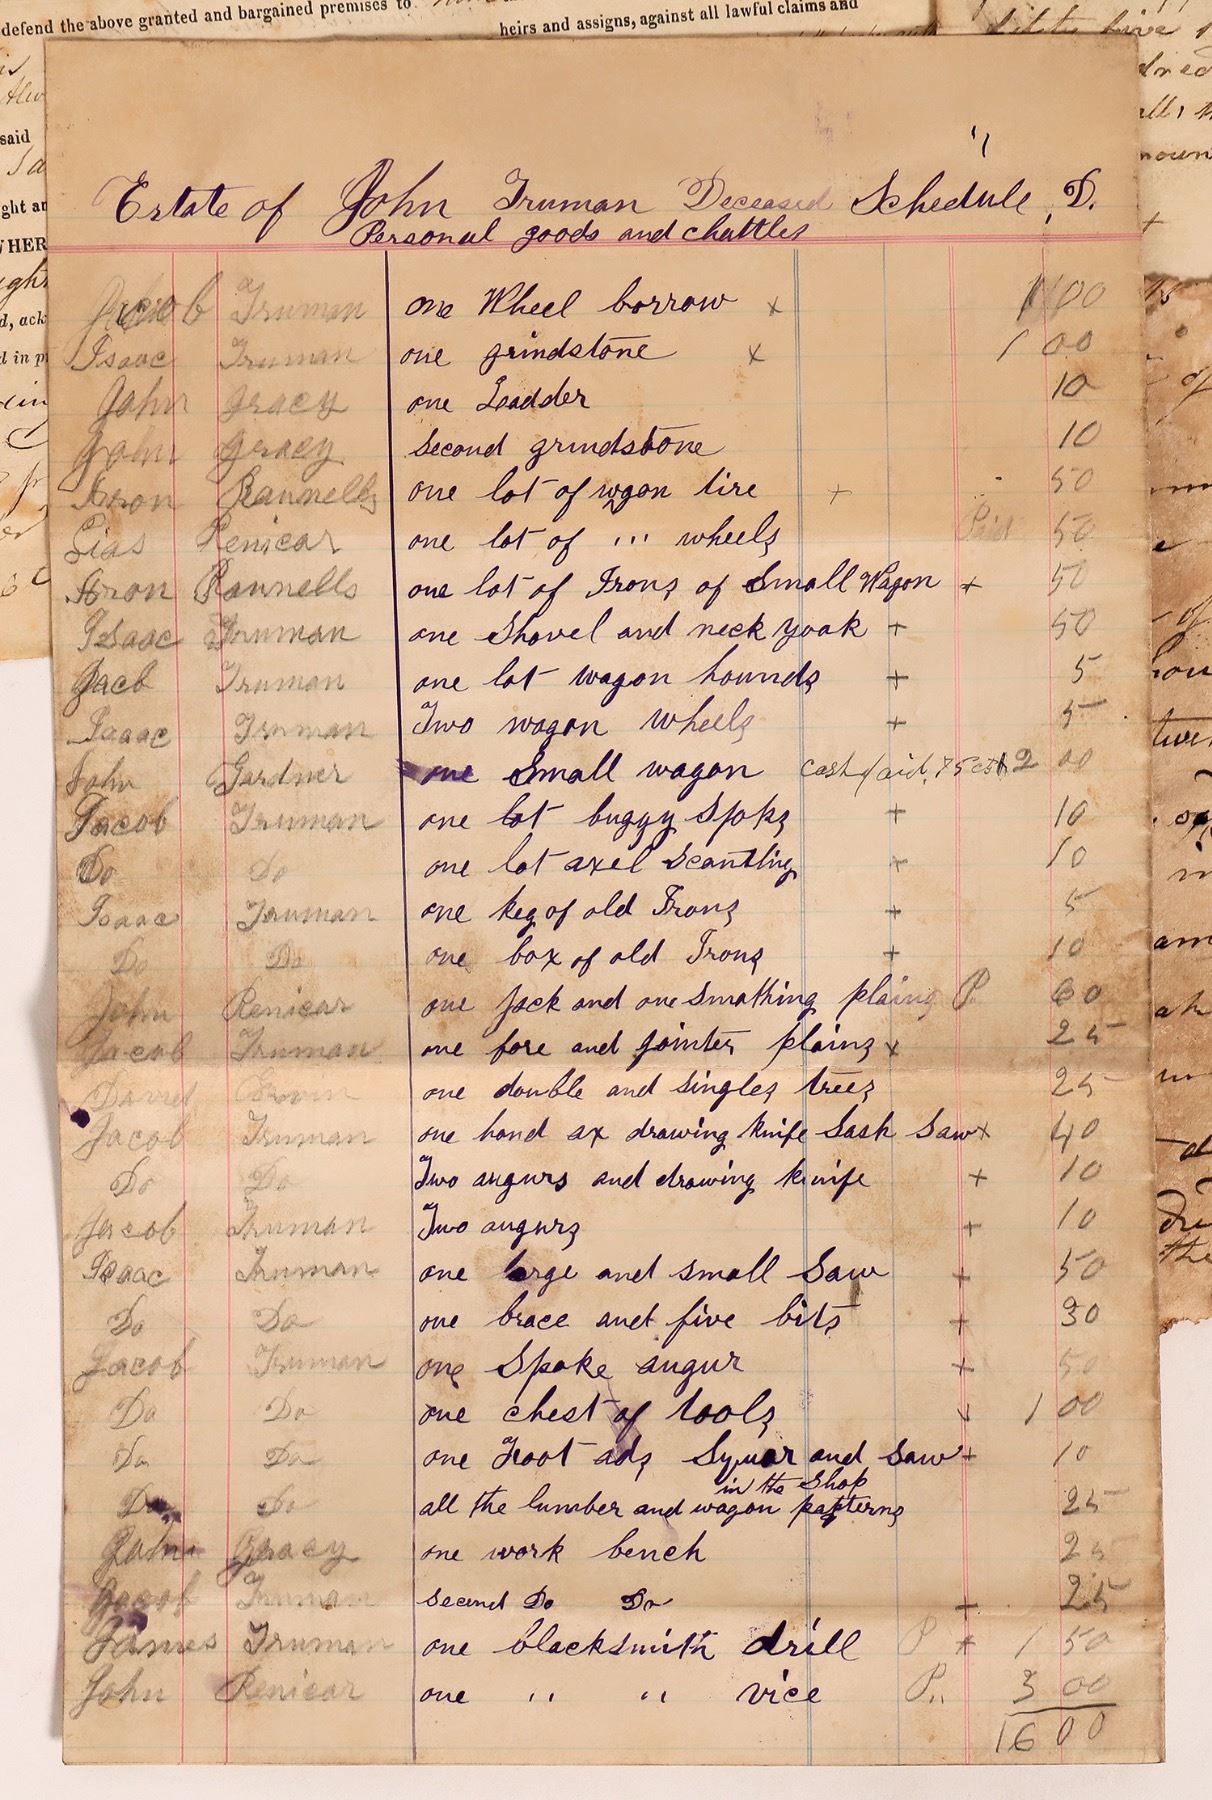 defend the above granted and bargained premises to
heirs and assigns, against all lawful claims and
said
Estate of John Truman Deceased Schedule, D.
Personal goods and chattles
Jacob Truman one Wheel borrow x 1 00
Isaac Truman one grindstone x 1 00
John Gracy one Ladder 10
John Gracy second grindstone 10
Aron Rannells one lot of wgon tire + 50
Lias Renicar one lot of ... wheels Paid 50
Aron Rannells one lot of Irons of Small Wagon + 50
Isaac Truman one Shovel and neck yoak + 50
Jacb Truman one lot wagon hounds + 5
Isaac Truman Two wagon wheels + 5
John Gardner one Small wagon cash paid, 75 cts 2 00
Jacob Truman one lot buggy Spoks + 10
Do Do one lot axel Scantling + 10
Isaac Truman one keg of old Irons + 5
Do Do one box of old Irons + 10
John Renicar one Jack and one Smothing plaing P. 60
Jacob Truman one fore and jointer plains x 25
David one double and singles trees 25
Jacob Truman one hand ax drawing knife Sash Saw x 40
Do Do Two augurs and drawing knife + 10
Jacob Truman Two augurs + 10
Isaac Truman one large and small Saw + 50
Do Do one brace and five bits + 30
Jacob Truman one Spoke augur + 50
Do Do one chest of tools 1 00
Do Do one Foot ads Squar and saw + 10
in the Shop
Do Do all the lumber and wagon patterns 25
John Gracy one work bench 25
Jacob Truman second Do Do + 25
James Truman one blacksmith drill P + 1 50
John Renicar one " " vice P,, 3 00
16 00